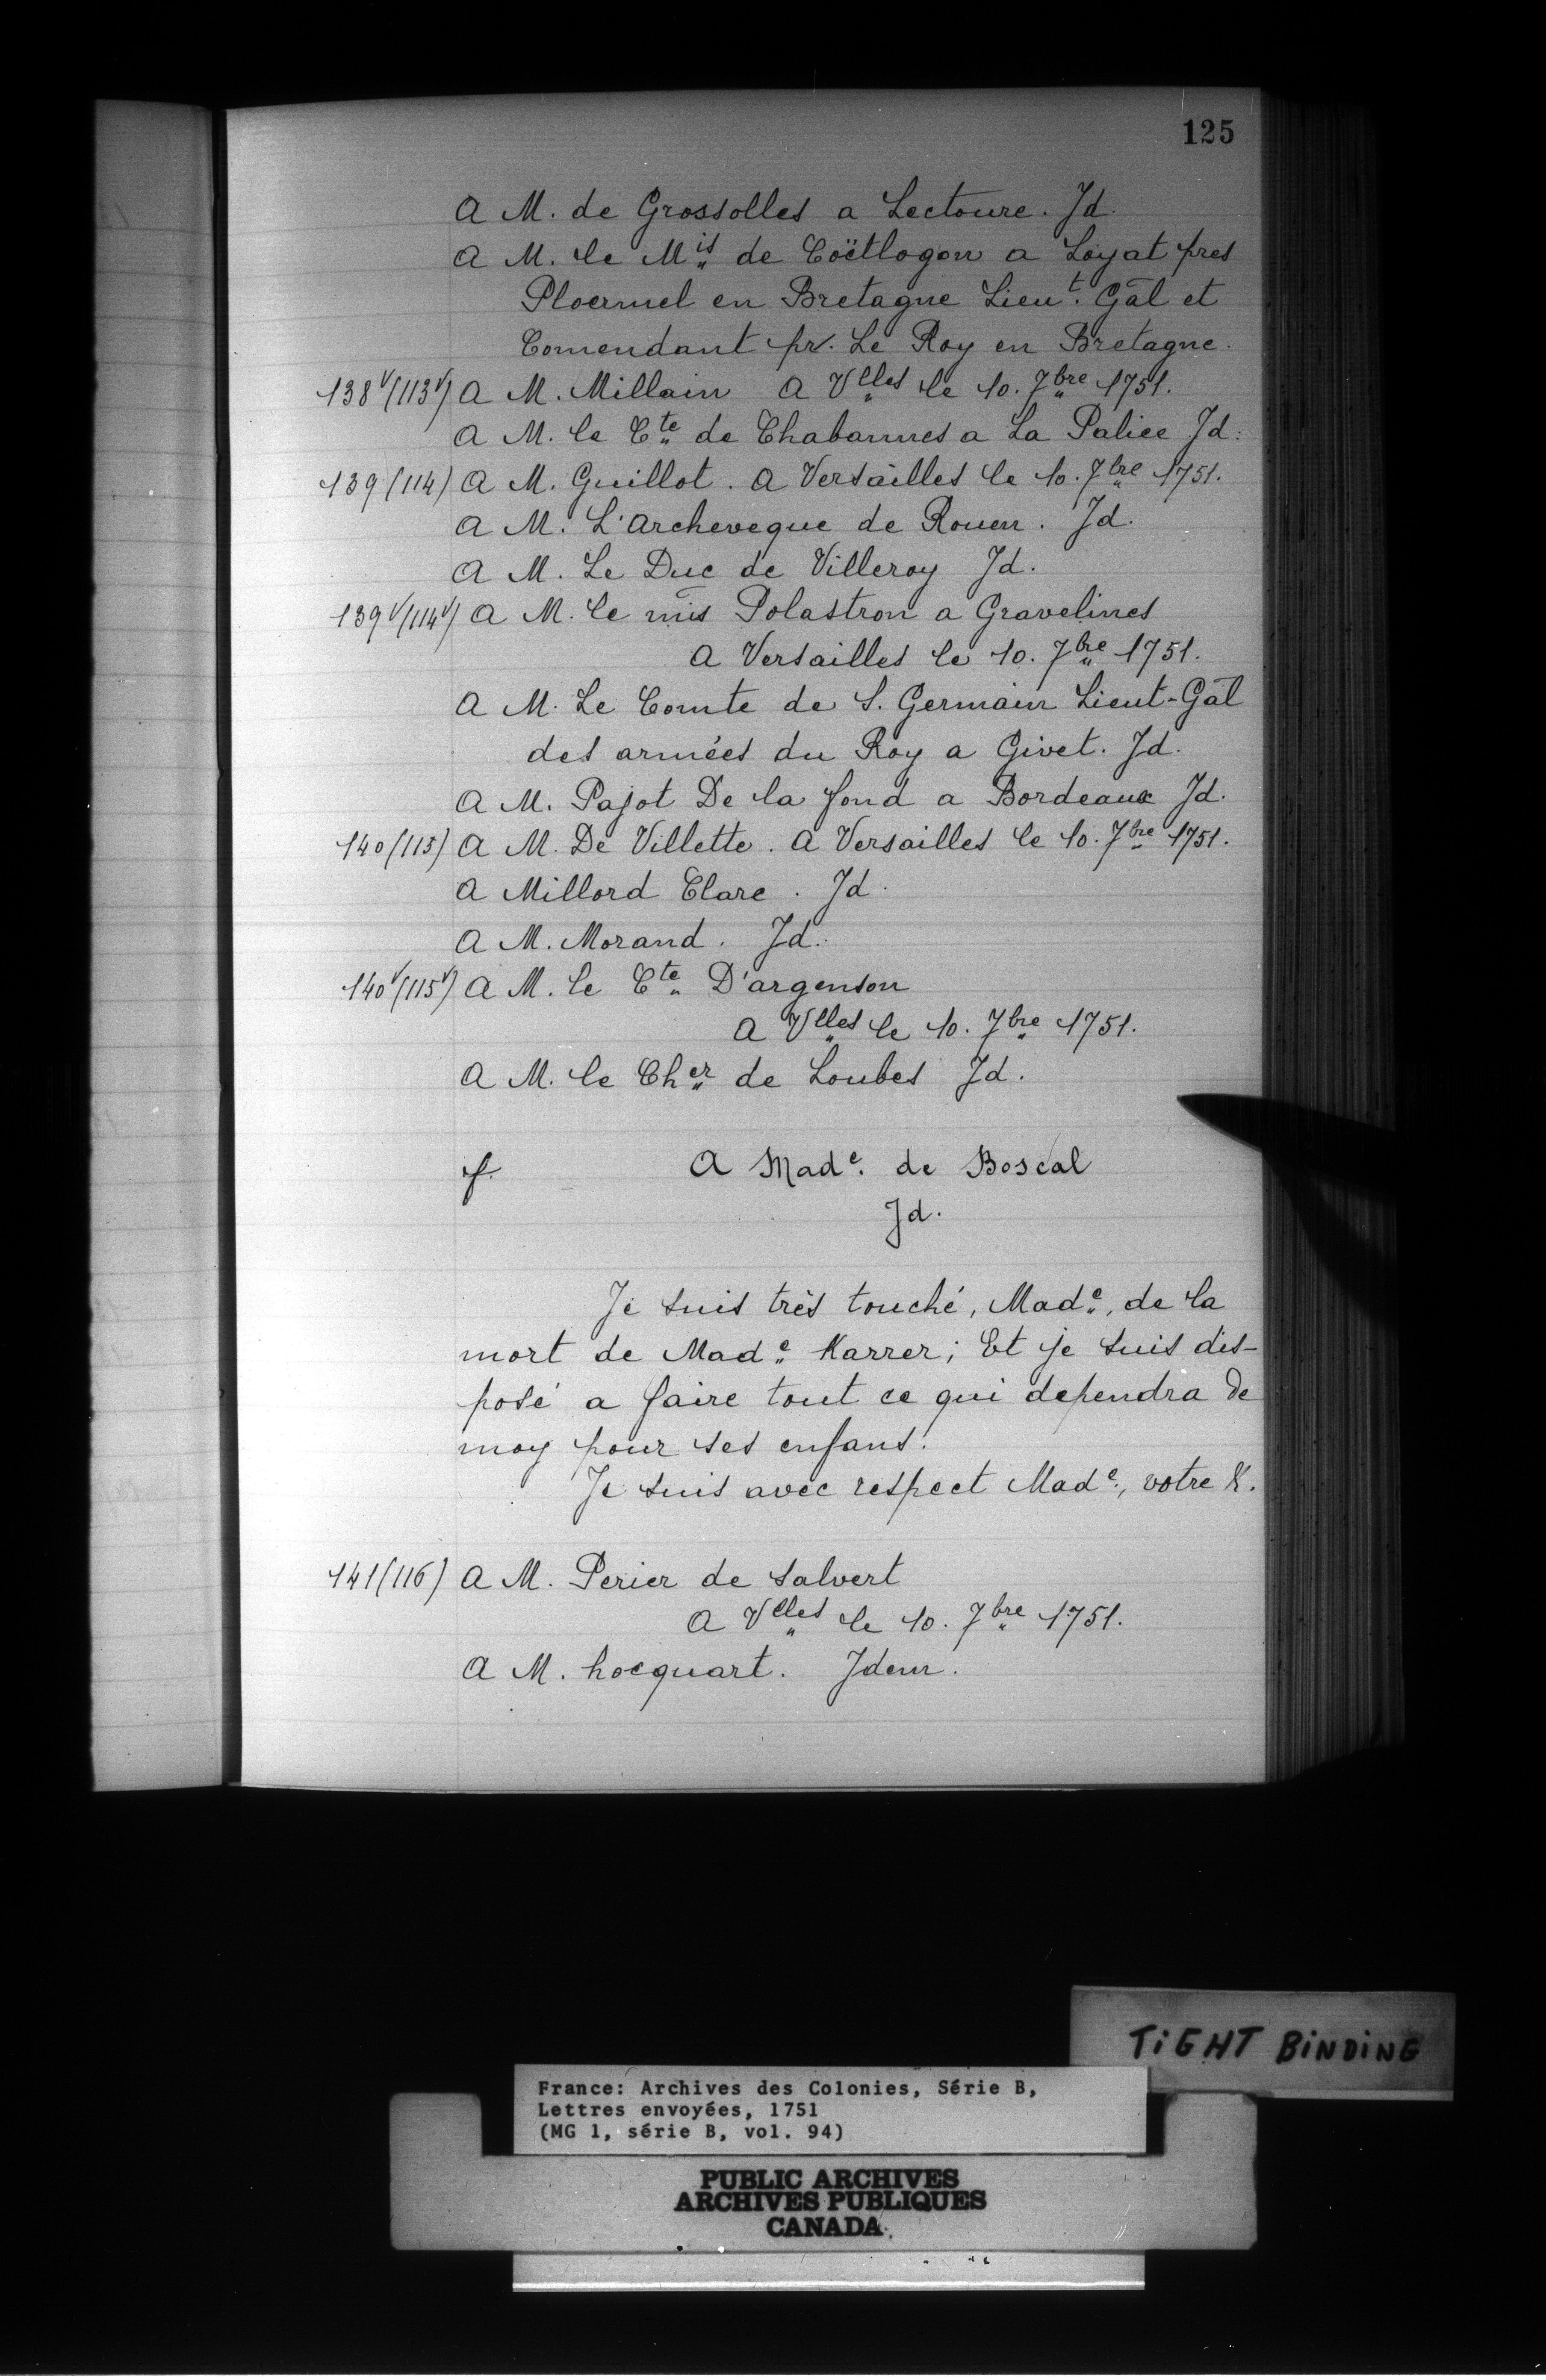 125
A M. de Grossolles a Lectoure. Jd.
A M. le Mis de Coëtlogon a Loyat pres
Ploermel en Bretagne Lieut. Gāl et
Comendant pr. Le Roy en Bretagne.
138v(113v) A M. Millain A Vlles le 10. 7bre 1751.
A M. le Cte de Chabannes a La Palice Jd.
139(114) A M. Guillot. A Versailles le 10. 7bre 1751.
A M. L'Archeveque de Rouen. Jd.
A M. Le Duc de Villeroy Jd.
139v(114v) A M. le mis Polastron a Gravelines
A Versailles le 10. 7bre 1751.
A M. Le Comte de S. Germain Lieut-Gāl
des armées du Roy a Givet. Jd.
A M. Pajot De la fond a Bordeaux Jd.
140(115) A M. De Villette. A Versailles le 10. 7bre 1751.
A Millord Clare. Jd.
A M. Morand. Jd.
140v(115v) A M. le Cte D'argenson
A Vlles le 10. 7bre 1751.
A M. le Cher de Loubes Jd.
f. A Made. de Boscal
Jd.
Je suis très touché, Made, de la
mort de Made Karrer; Et je suis dis-
posé a faire tout ce qui dependra de
moy pour ses enfans.
Je suis avec respect Made, votre &.
141(116) A M. Perier de Salvert
A Vlles le 10. 7bre 1751.
A M. hocquart. Jdem.
TIGHT BINDING
France: Archives des Colonies, Série B,
Lettres envoyées, 1751
(MG 1, série B, vol. 94)
PUBLIC ARCHIVES
ARCHIVES PUBLIQUES
CANADA